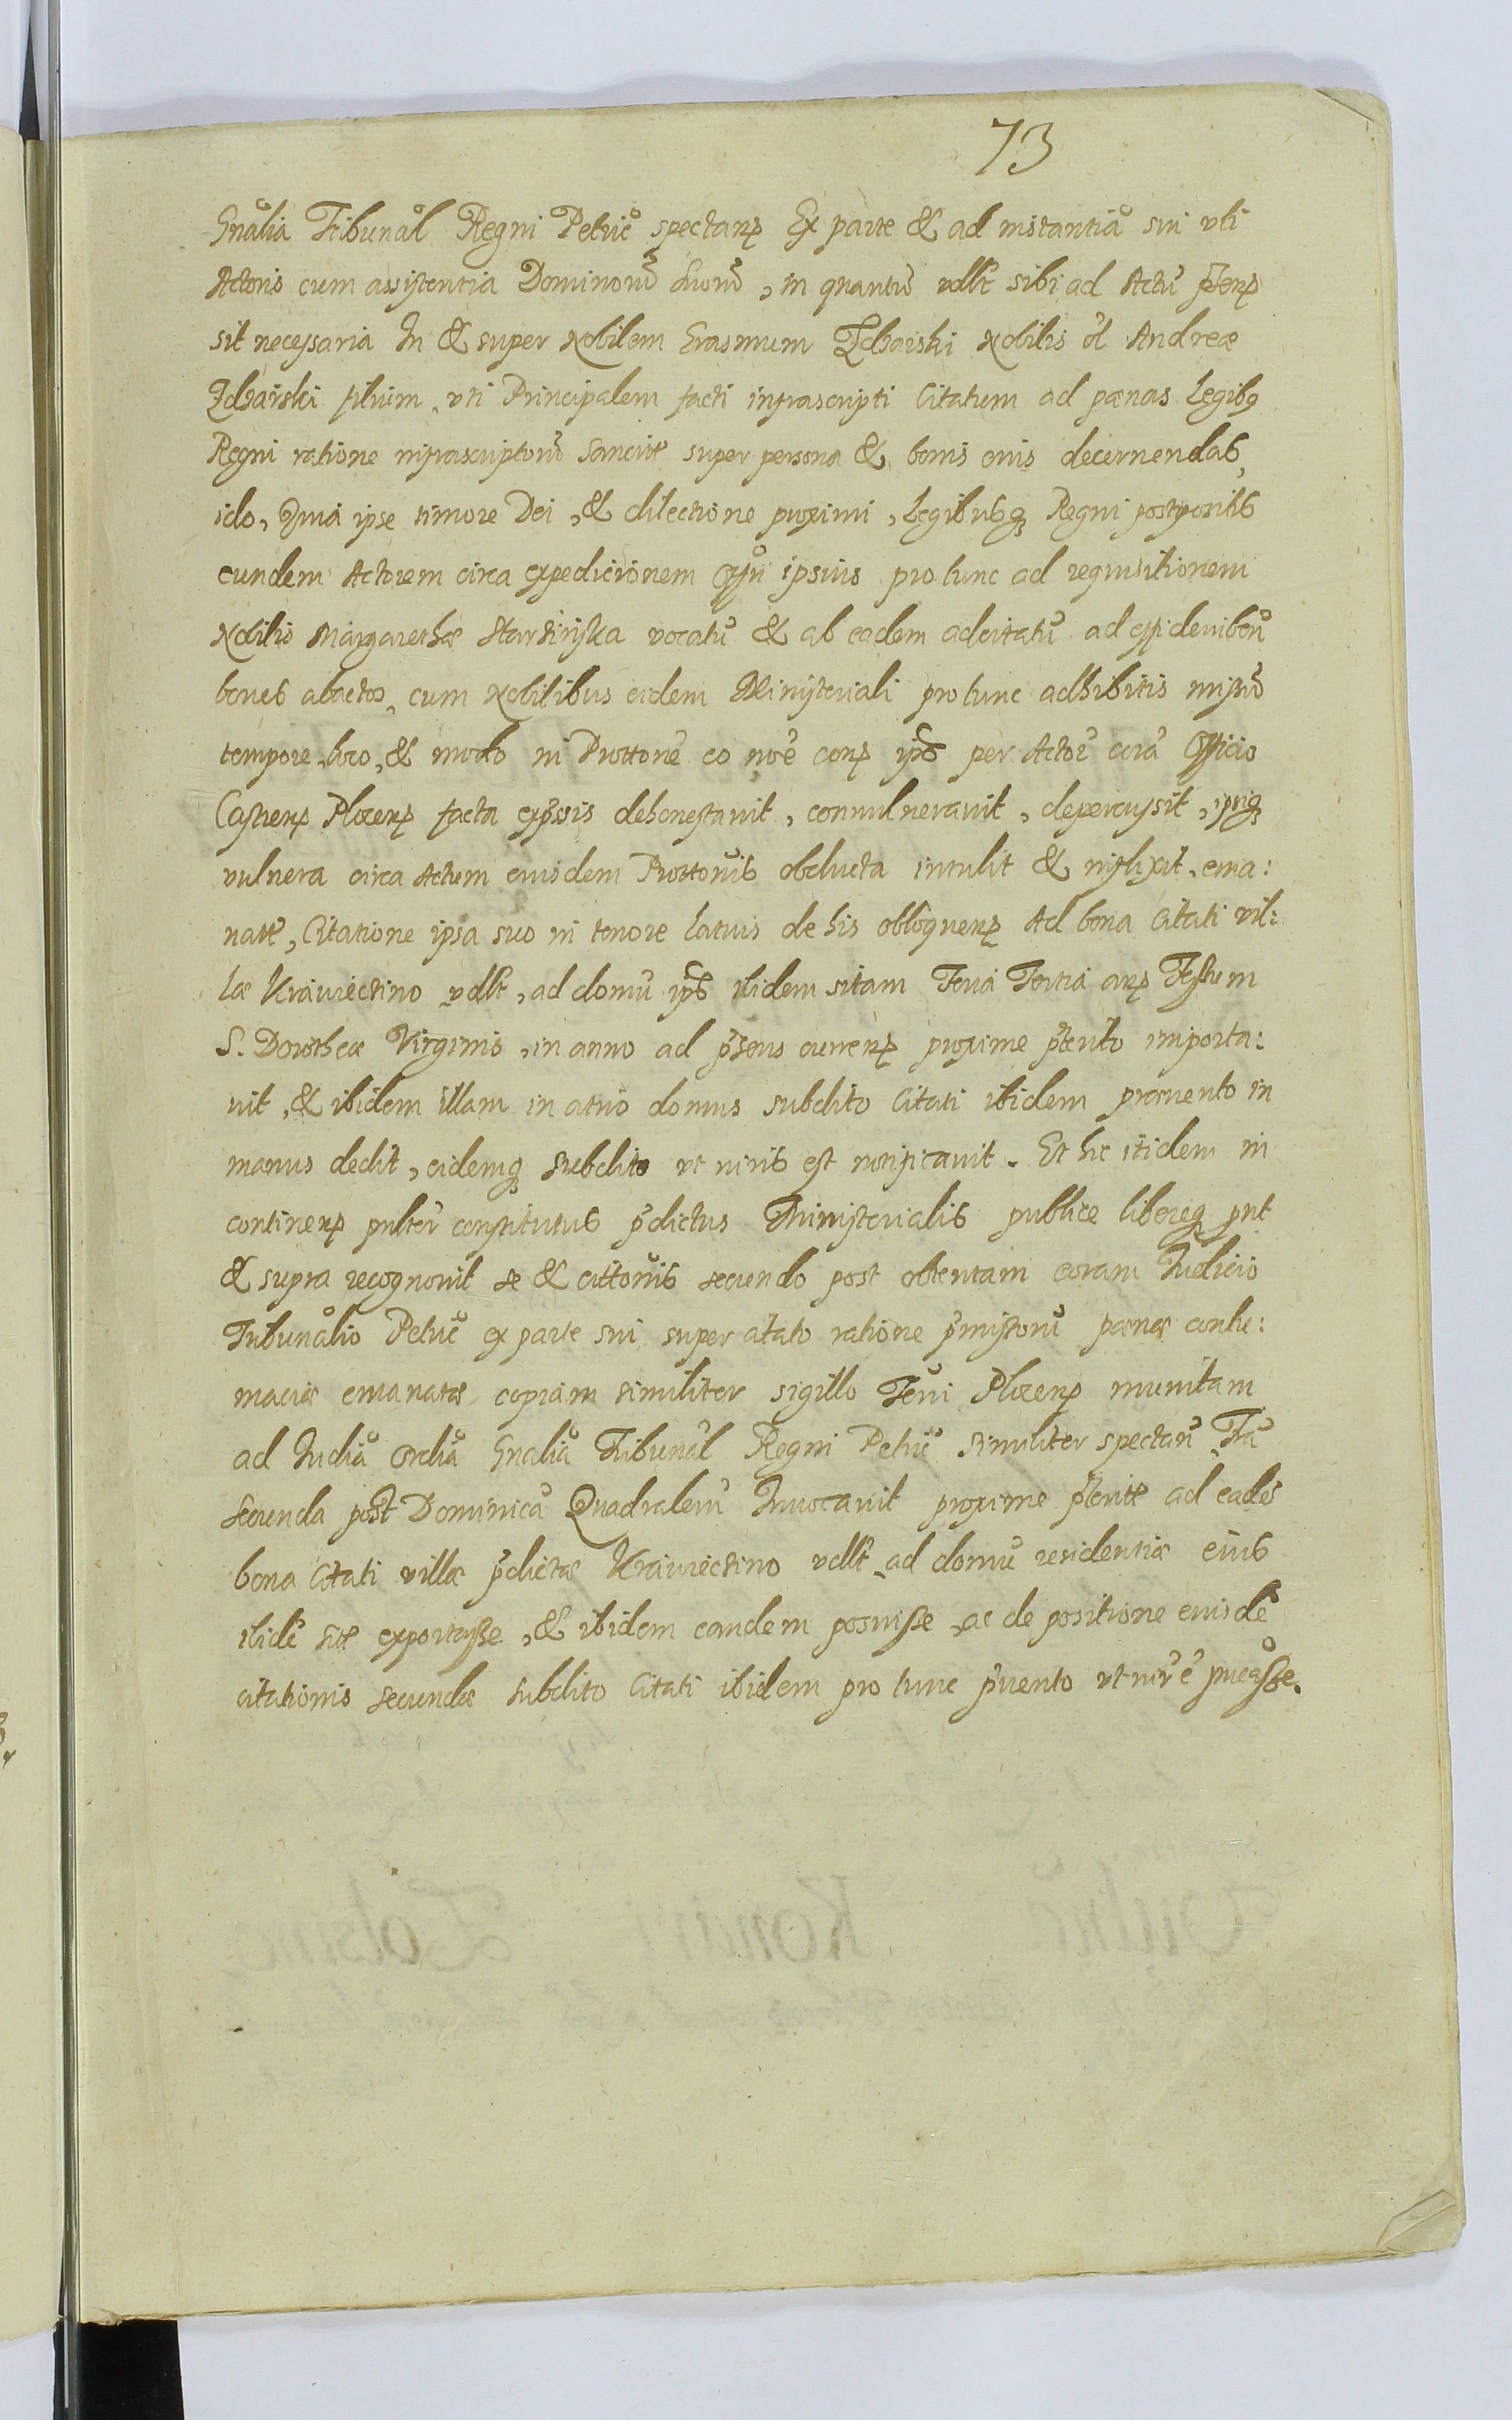 73
Gnalia Tribunal Regni Petric spectans Ex parte & ad instantia sui uti
Actoris cum assistentia Dominoru suoru, in quantu vdlt sibi ad Actu ptens
sit necessaria In & super Nobilem Erasmum Zdzarski Nobilis ol Andreæ
Zdzarski filium, uti Principalem facti infrascripti Citatum ad pænas Legibq
Regni ratione infrascriptoru sancitt super persona & bonis eius decernendas,
ido, Quia ipse timore Dei, & dilectione proximi, Legibusq Regni postpositis
eundem Actorem circa expedicionem ipsius pro tunc ad requisitionem
Nobilis Margarethæ vocatu & ab eadem adcitatu ad
boves abactos, cum Nobilibus eidem Ministeriali pro tunc adhibitis missu
tempore, loco, & modo in Prottone eo noe cons ips per Actore cora Officio
Castrens Plocens facta expssis dehonestavit, convulneravit, depercussit, ipsiq
vulnera circa Actum eiusdem Prottonis obducta intulit & inflixit, ema:
natt, Citatione ipsa suo in tenore latius de his obloquens Ad bona Citati vil:
læ Krawieczino vdlt, ad domu ips ibidem sitam Feria Tertia ans Festum
S. Dorotheæ Virginis, in anno ad psens currens proxime pterito importa:
vit, & ibidem illam in atrio domus subdito Citati ibidem præuento in
manus dedit, eidemq subdito ut iuris est notificavit. Et hic itidem in
continens psnlter constitutus pdictus Ministerialis publice libereq put
& supra recognovit se & cittonis secundo post obtentam coram Iudicio
Tribunalio Petric ex parte sui super citato ratione pmissoru pænæ contu:
maciæ emanatæ copiam similiter sigillo Terri Plocens munitam
ad Iudia Ordia Gnalia Tribunal Regni Petric similiter spectan Fra
secunda post Dominica Quadralem Invocavit proxime pteritt ad eade
bona Citati villæ pdictæ Krawieczino vdlt, ad domu residentiæ eius
ibide sitt exportasse, & ibidem eandem posuisse, ac de positione eiusde
citationis secundæ subdito Citati ibidem pro tunc puento ut iur e pucasse.